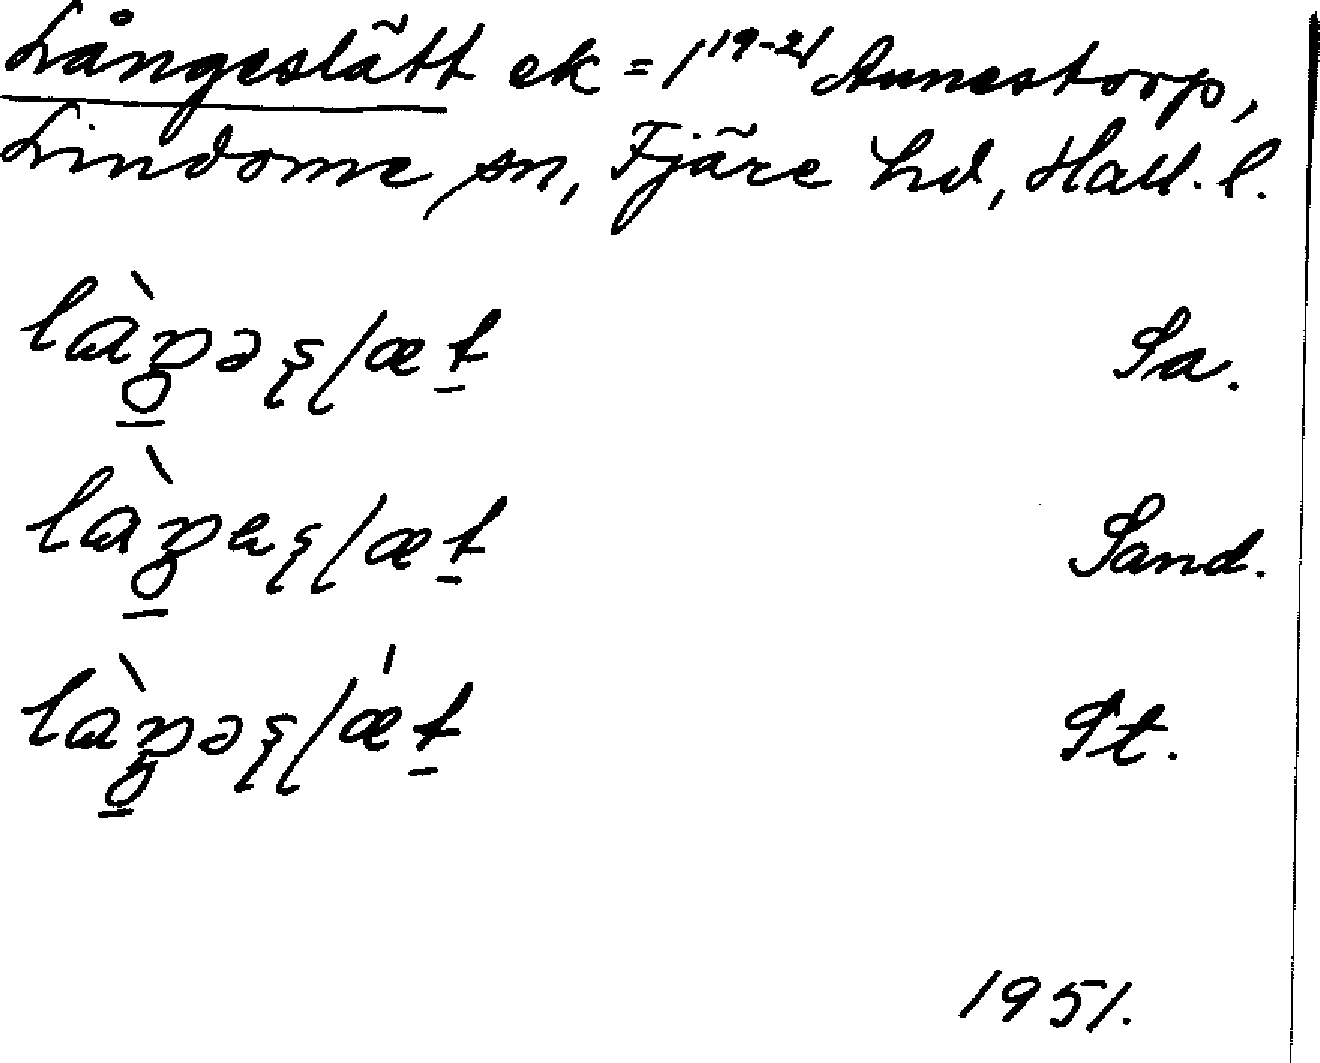 Långeslätt ek = 1¹⁹⁻²¹ Annestorp,
Lindome sn, Fjäre hd, Hall. l.
là̱ŋəşlæt̲ Sa.
là̱ŋeşlæt̲ Sand.
là̱ŋəşlǽt̲ St.
1951.